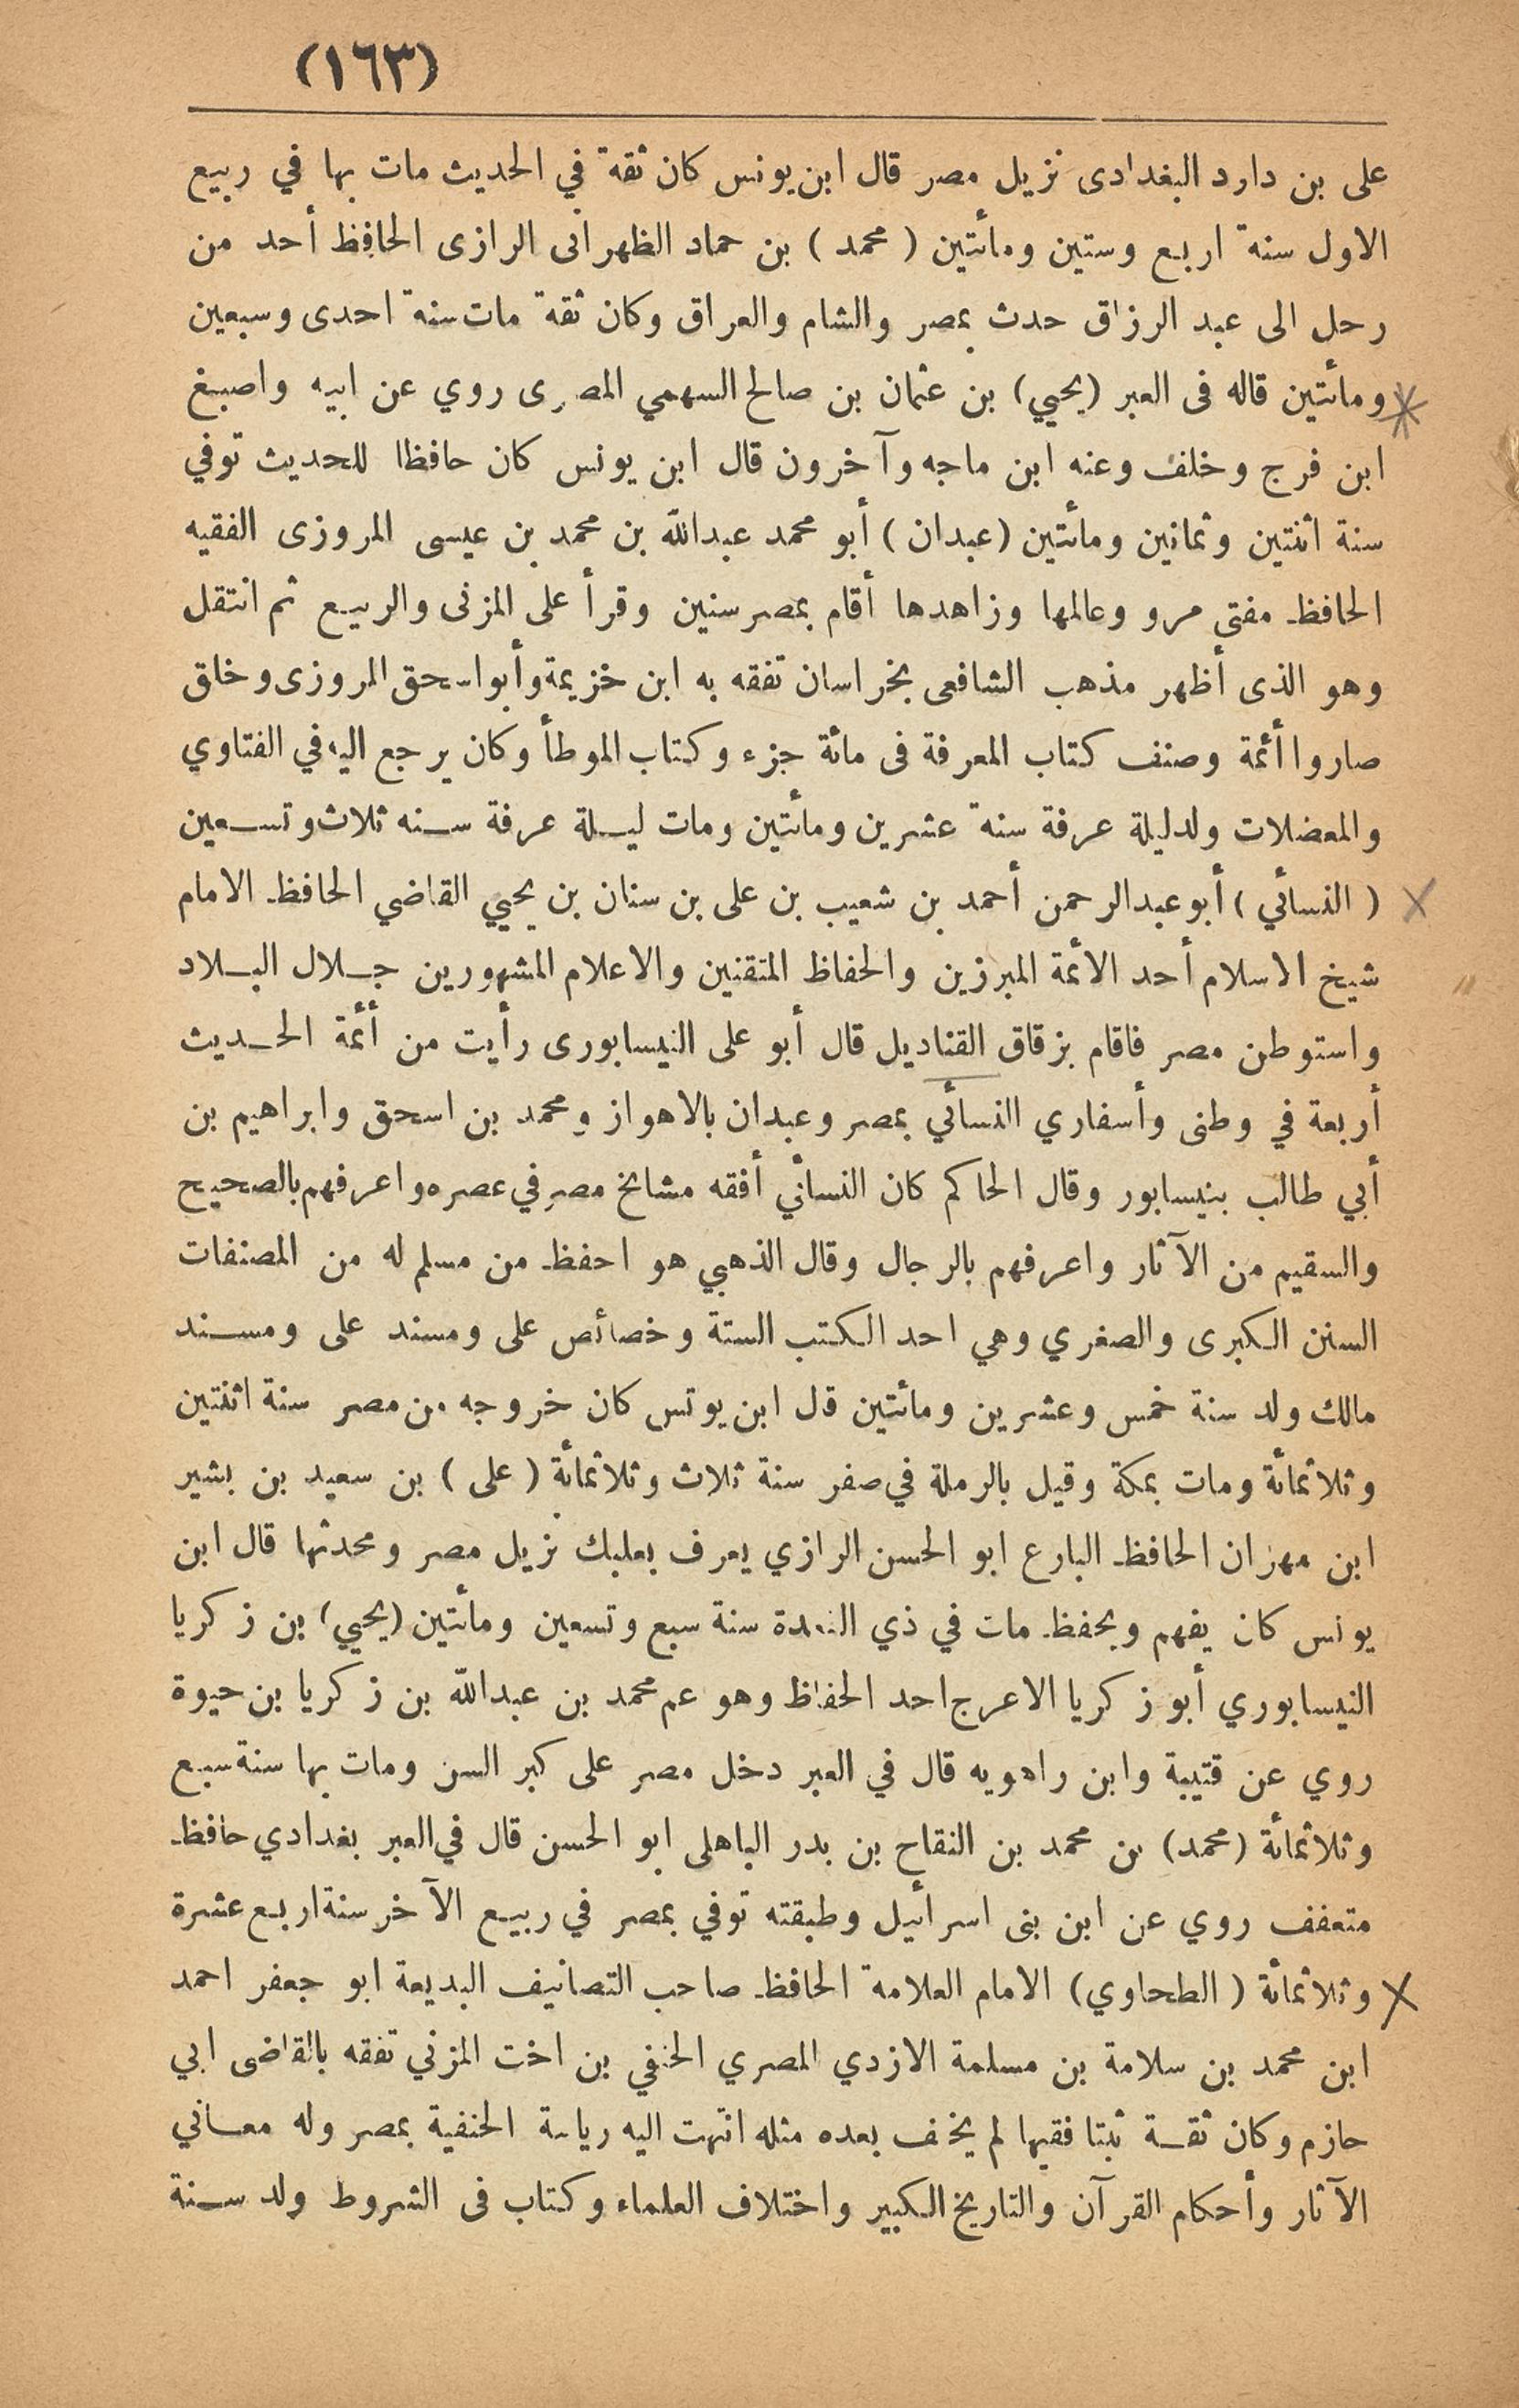 (١٦٣)
على بن دارد البغدادى نزيل مصر قال ابن يونس كان ثقة في الحديث مات بها في ربيع
الاول سنة اربع وستين ومأتين ( محمد ) بن حماد الظهرانى الرازى الحافظ أحد من
رحل الى عبد الرزاق حدث بمصر والشام والعراق وكان ثقة مات سنة احدى وسبعين
ومأتين قاله فى العبر (يحيي) بن عثمان بن صالح السهمي المصرى روي عن ابيه واصبغ
ابن فرج وخلف وعنه ابن ماجه وآخرون قال ابن يونس كان حافظا للحديث توفي
سنة اثنتين وثمانين ومأتين (عبدان ) أبو محمد عبدالله بن محمد بن عيسى المروزى الفقيه
الحافظ مفتى مرو وعالمها وزاهدها أقام بمصر سنين وقرأ على المزنى والربيع ثم انتقل
وهو الذى أظهر مذهب الشافعى بخراسان تفقه به ابن خزيمة وأبواسحق المروزى وخاق
صاروا أئمة وصنف كتاب المعرفة فى مائة جزء وكتاب الموطأ وكان يرجع اليه في الفتاوي
والمعضلات ولدليلة عرفة سنة عشرين ومأتين ومات ليلة عرفة سنه ثلاث وتسعين
( النسائي ) أبو عبدالرحمن أحمد بن شعيب بن على بن سنان بن يحيي القاضي الحافظ الامام
شيخ الاسلام أحد الأئمة المبرزين والحفاظ المتقنين والاعلام المشهورين جلال البلاد
واستوطن مصر فاقام بزقاق القناديل قال أبو على النيسابورى رأيت من أئمة الحديث
أربعة في وطنى وأسفاري النسائي بمصر وعبدان بالاهواز ومحمد بن اسحق وابراهيم بن
أبي طالب بنيسابور وقال الحاكم كان النسائي أفقه مشايخ مصر في عصره واعرفهم بالصحيح
والسقيم من الآثار واعرفهم بالرجال وقال الذهبي هو احفظ من مسلم له من المصنفات
السنن الكبرى والصغري وهي احد الكتب الستة وخصائص على ومسند على ومسند
مالك ولد سنة خمس وعشرين ومأتين قل ابن يوتس كان خروجه من مصر سنة اثنتين
وثلاثمائة ومات بمكة وقيل بالرملة في صفر سنة ثلاث وثلاثمائة ( على ) بن سعيد بن بشير
ابن مهزان الحافظ البارع ابو الحسن الرازي يعرف بعلبك نزيل مصر ومحدثها قال ابن
يونس كان يفهم ويحفظ مات في ذي القعدة سنة سبع وتسعين ومأتين (يحيي) بن زكريا
النيسابوري أبو زكريا الاعرج احد الحفاظ وهو عم محمد بن عبدالله بن زكريا بن حيوة
روي عن قتيبة وابن راهويه قال في العبر دخل مصر على كبر السن ومات بها سنة سبع
وثلاثمائة (محمد) بن محمد بن النقاح بن بدر الباهلى ابو الحسن قال في العبر بغدادي حافظ
متعفف روي عن ابن بنى اسرائيل وطبقته توفي بمصر في ربيع الآخر سنة اربع عشرة
وثلاثمائة ( الطحاوي ) الامام العلامة الحافظ صاحب التصانيف البديعة ابو جعفر احمد
ابن محمد بن سلامة بن مسلمة الازدي المصري الحنفي بن اخت المزني تفقه بالقاضى ابي
حازم وكان ثقة ثبتا فقيها لم يخف بعده مثله انتهت اليه رياسة الحنفية بمصر وله معاني
الآثار وأحكام القرآن والتاريخ الكبير واختلاف العلماء وكتاب فى الشروط ولد سنة